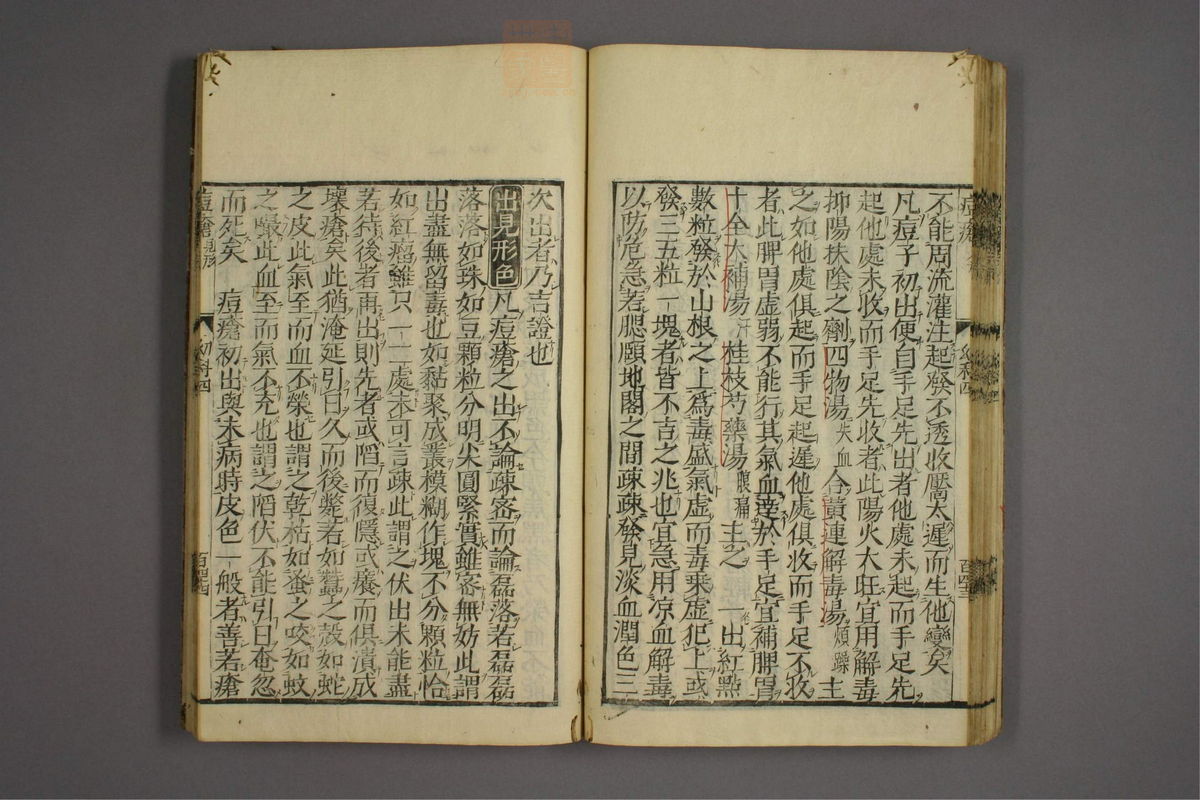 不能周流灌注起發不透收靨太遲而生他變矣
凡痘子初出便自手足先出者他處未起而手足先
起他處未收而手足先收者此陽火大旺宜用解毒
抑陽扶陰之劑四物湯失血合黃連解毒湯煩躁主
之如他處俱起而手足起遲他處俱收而手足不收
者此脾胃虛弱不能行其氣血達於手足宜補脾胃
十全大補湯汗桂枝芍藥湯腹痛主之 一出紅點
數粒發於山根之上爲毒盛氣虛而毒乘虛犯上或
發三五粒一塊者皆不吉之兆也宜急用凉血解毒
以防危急若腮頤地閣之間疎疎發見淡血潤色三
次出者乃吉證也
出見形色凡痘瘡之出不論疎密而論磊落若磊磊
落落如珠如豆顆粒分明尖圓緊實雖密無妨此謂
出盡無留毒也如黏聚成叢模糊作塊不分顆粒恰
如紅瘤雖只一二處未可言疎此謂之伏出未能盡
若待後者再出則先者或陷而復隱或癢而俱潰成
壞瘡矣此猶淹延引日久而後斃若如蠶之殼如蛇
之皮此氣至而血不榮也謂之乾枯如蚤之咬如蚊
之囓此血至而氣不充也謂之陷伏不能引日奄忽
而死矣 痘瘡初出與未病時皮色一般者善若瘡
痘瘡見形 幼科四 百四十四